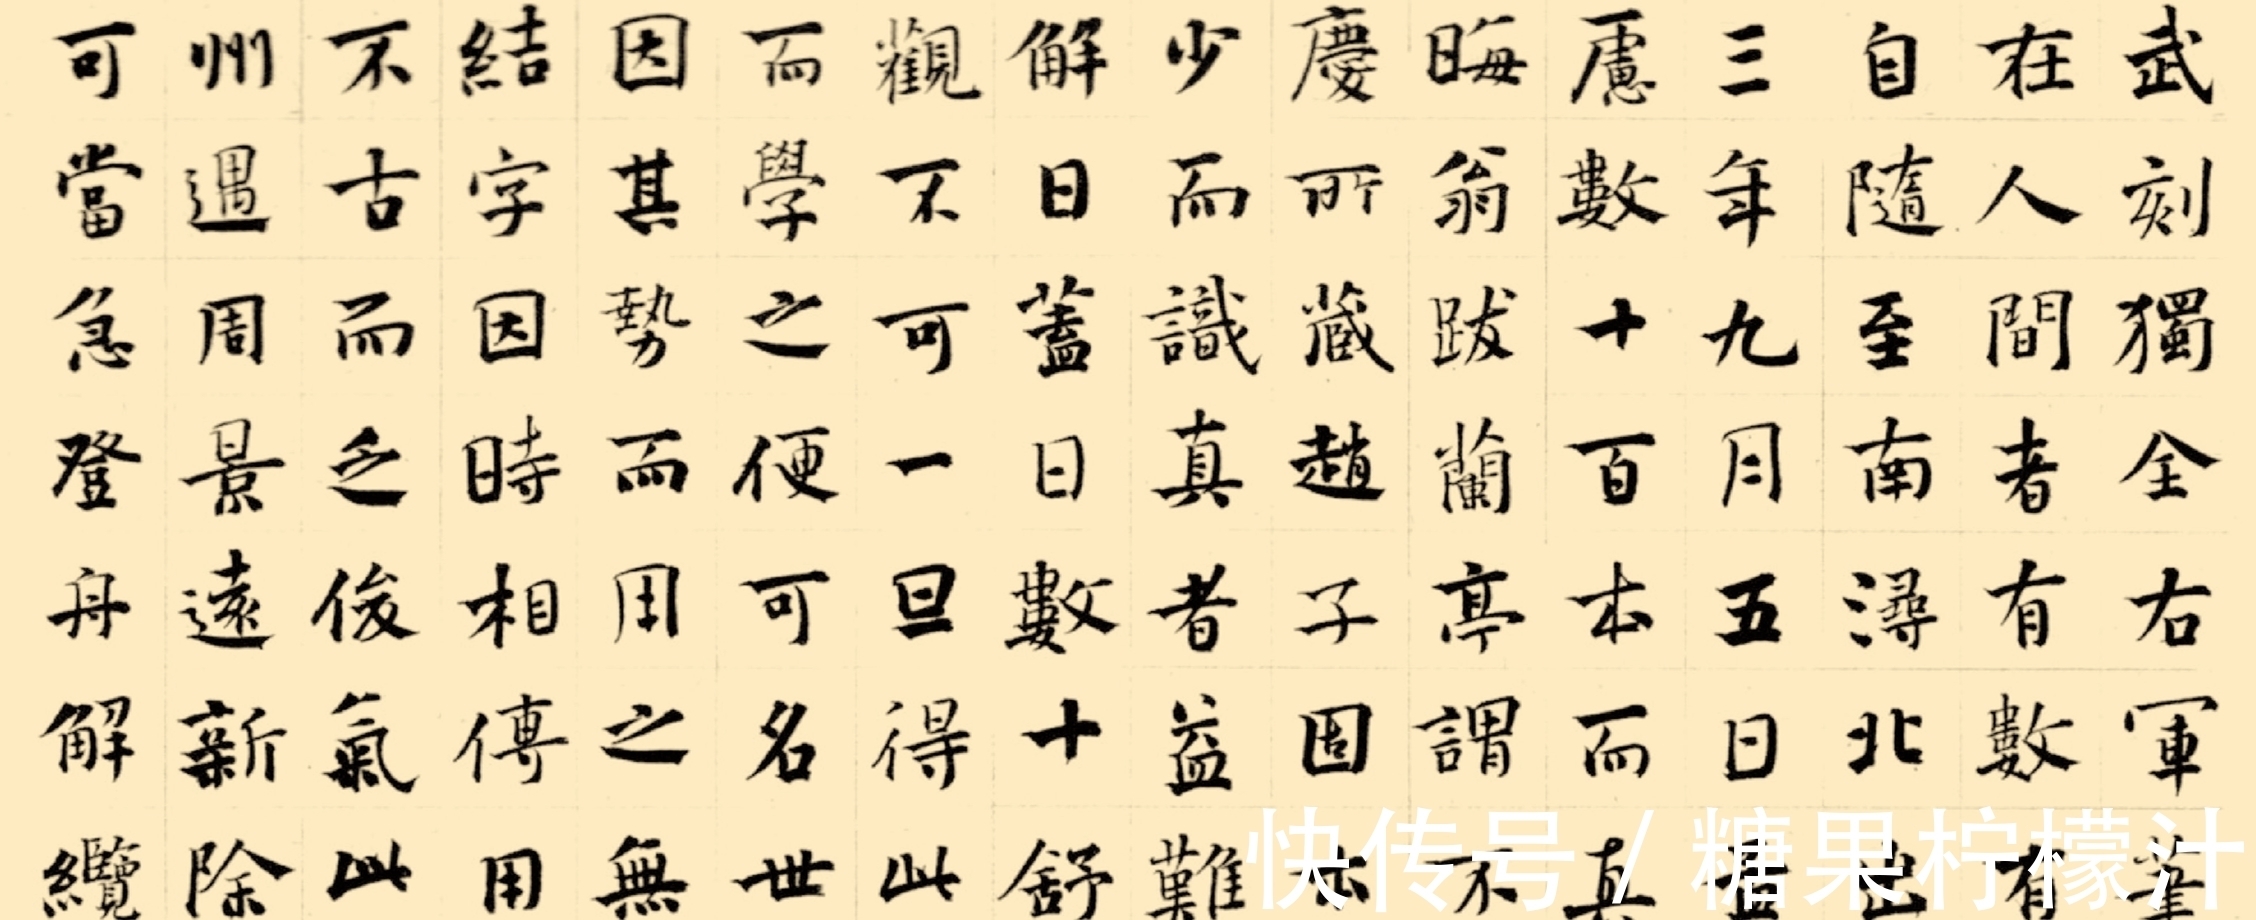 武刻獨全右軍筆
在人間者有數有
自隨至南潯北出
三年九月五日
慮數十百本而真
晦翁跋蘭亭謂不
慶所藏趙子固本
少而識真者益難
解日蓋日數十舒
觀不可一旦得此
而學之便可名世
因其勢而用之無
結字因時相傳用
不古而乏俊氣此
州遇周景遠新除
可當急登舟解纜
快传号 / 糖果柠檬汁